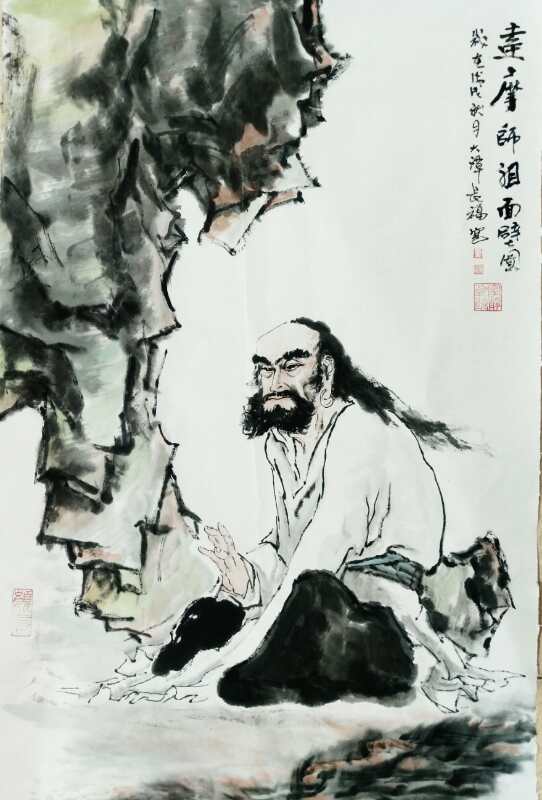 達摩師祖面壁圖
歲在戊戌秋月大潭長福寫